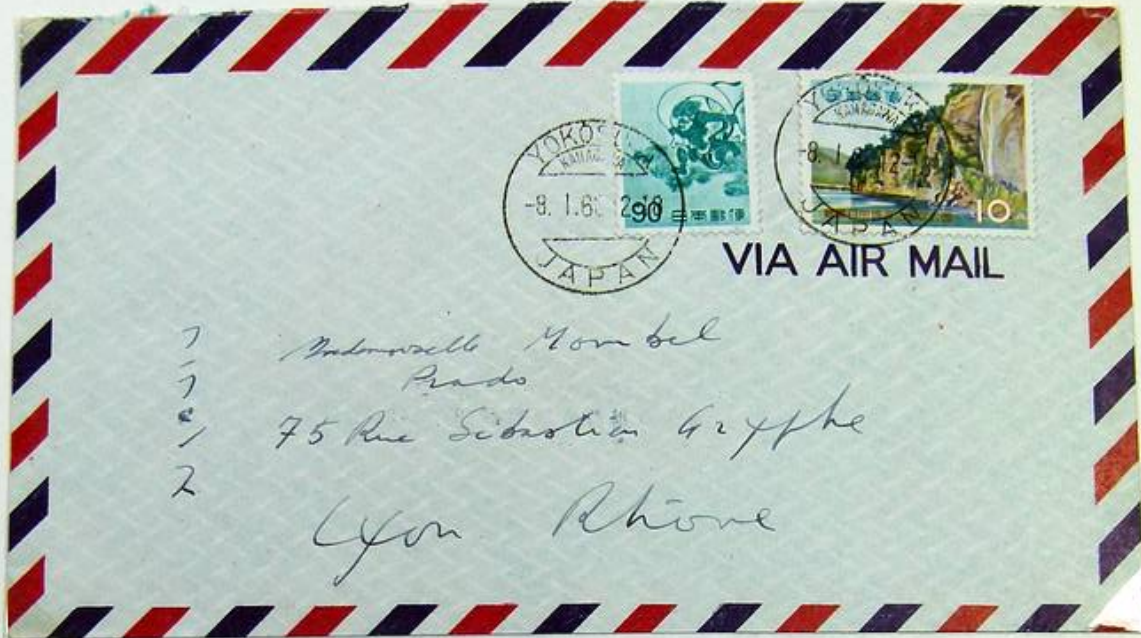 YOKOSUKA
KANAGAWA
-8. 1.6
JAPAN
90 日本郵便
YOKOSUKA
KANAGAWA
-8.
JAPAN
10
VIA AIR MAIL
フランス
Mademoiselle Mombel
Prado
75 Rue Sébastien Gryphe
Lyon Rhône